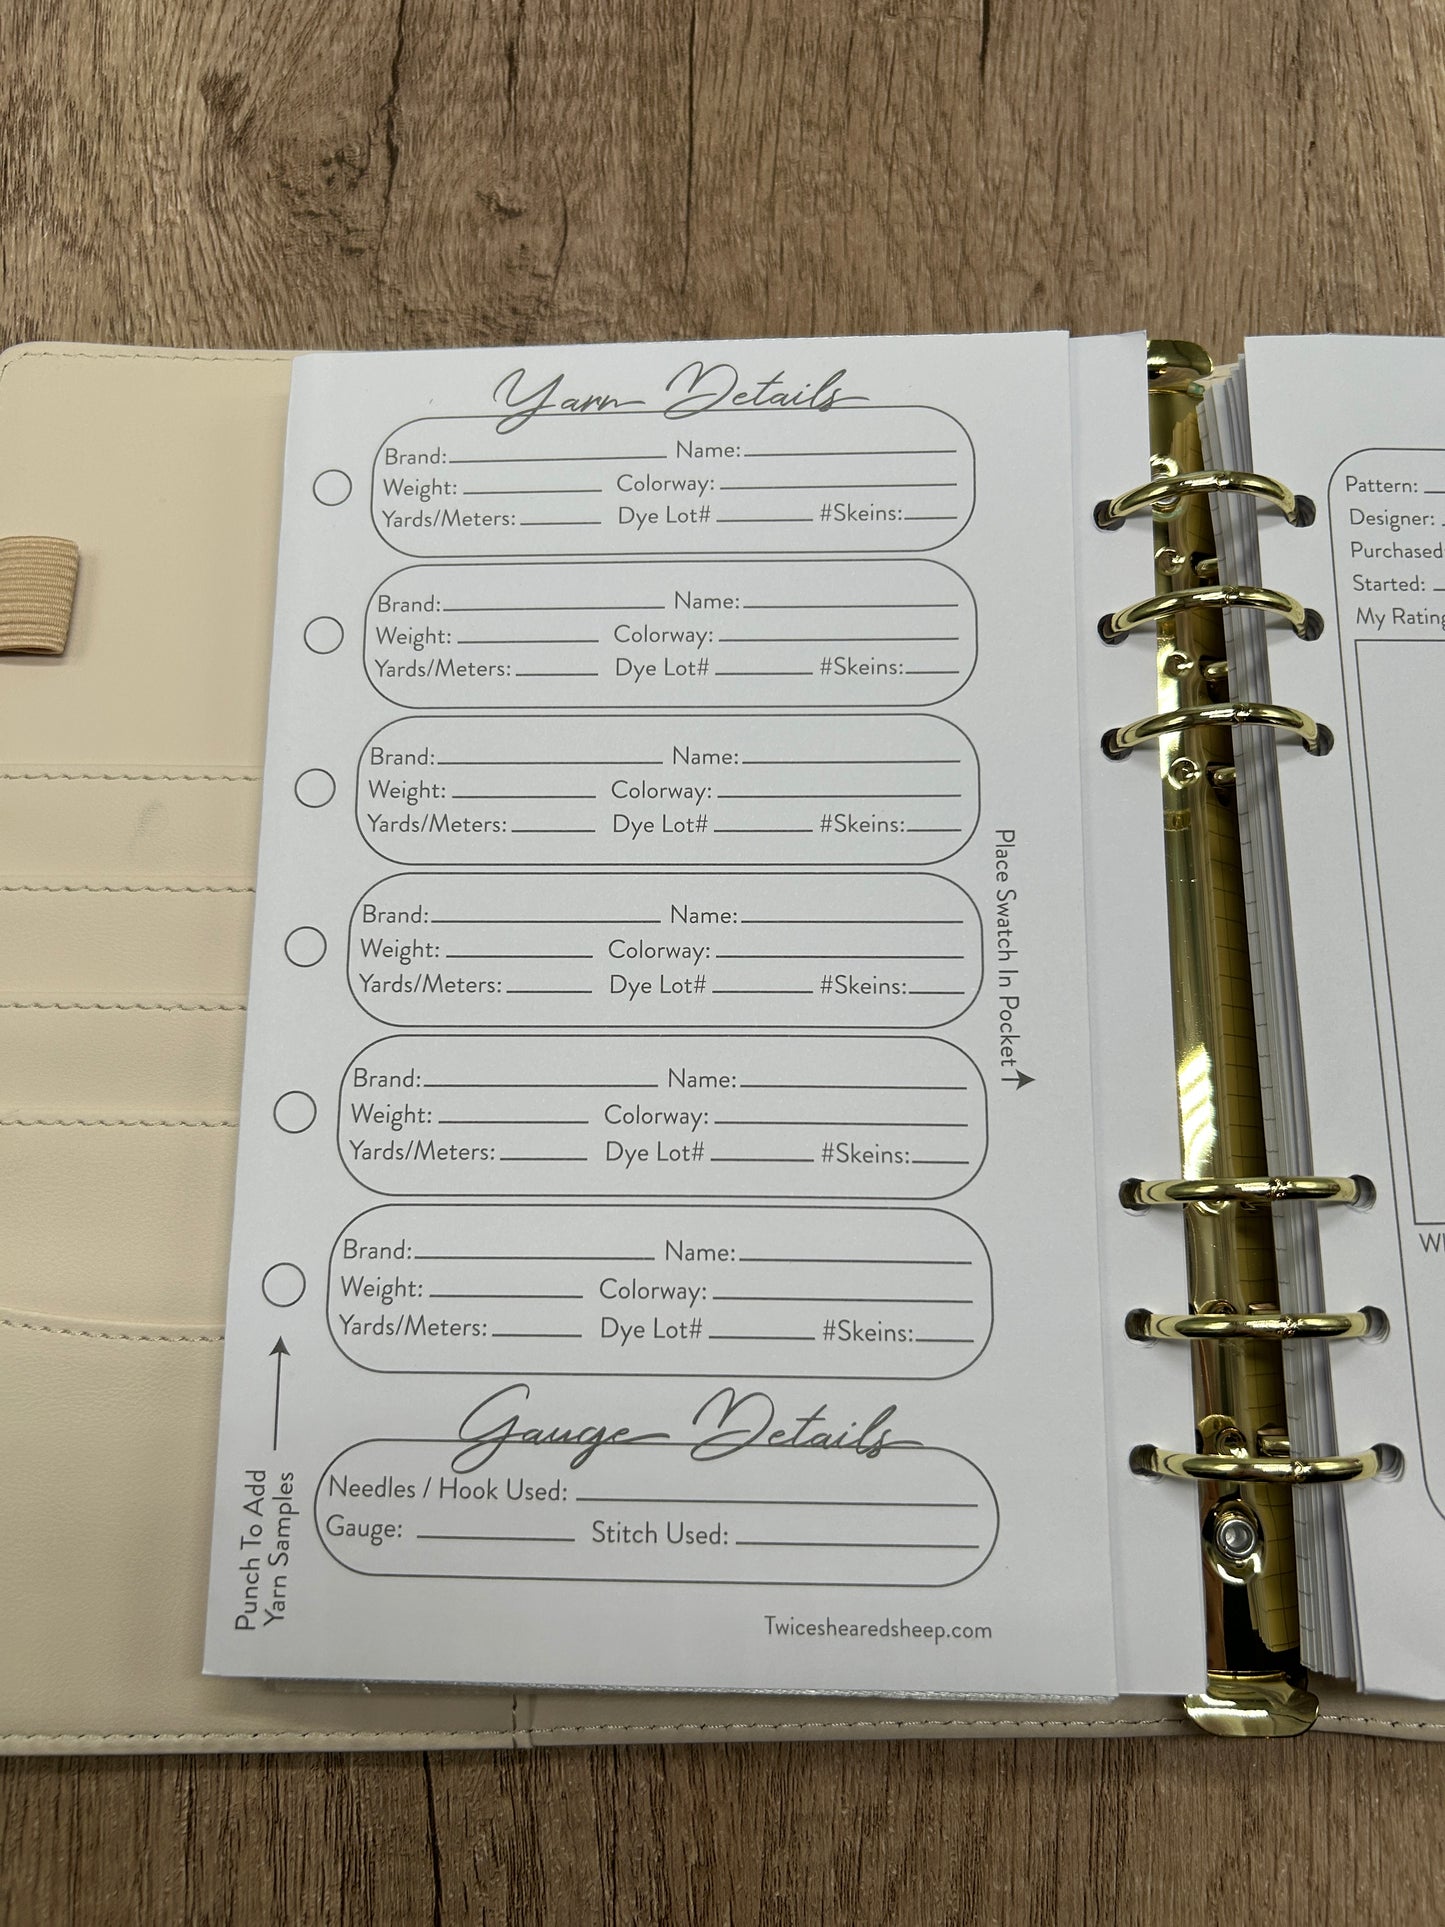 Yarn Details
Brand: Name:
Weight: Colorway:
Yards/Meters: Dye Lot# #Skeins:
Brand: Name:
Weight: Colorway:
Yards/Meters: Dye Lot# #Skeins:
Brand: Name:
Weight: Colorway:
Yards/Meters: Dye Lot# #Skeins:
Brand: Name:
Weight: Colorway:
Yards/Meters: Dye Lot# #Skeins:
Brand: Name:
Weight: Colorway:
Yards/Meters: Dye Lot# #Skeins:
Brand: Name:
Weight: Colorway:
Yards/Meters: Dye Lot# #Skeins:
Place Swatch In Pocket
Punch To Add
Yarn Samples
Gauge Details
Needles / Hook Used:
Gauge: Stitch Used:
Twiceshearedsheep.com
Pattern:
Designer:
Purchased
Started:
My Rating